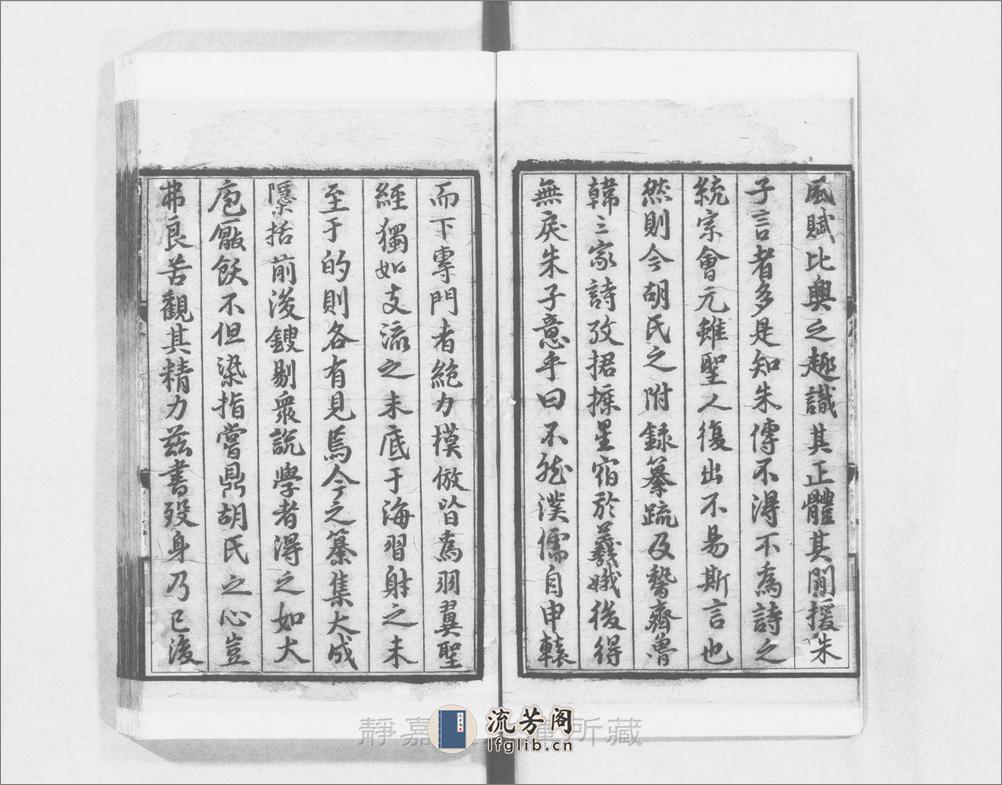 風賦比興之趣識其正體其間援朱
子言者多是知朱傳不得不為詩之
統宗會元雖聖人復出不易斯言也
然則今胡氏之附録纂疏及暨齊魯
韓三家詩攷捃摭星宿於羲娥後得
無戾朱子意乎曰不然漢儒自申轅
而下專門者絶力模倣皆為羽翼聖
經獨如支流之未底于海習射之未
至于的則各有見焉今之纂集大成
檃括前後鎪剔衆説學者得之如大
庖厭飫不但染指嘗鼎胡氏之心豈
弗良苦觀其精力茲書歿身乃已後
靜嘉 所藏
流芳阁
lfglib.cn